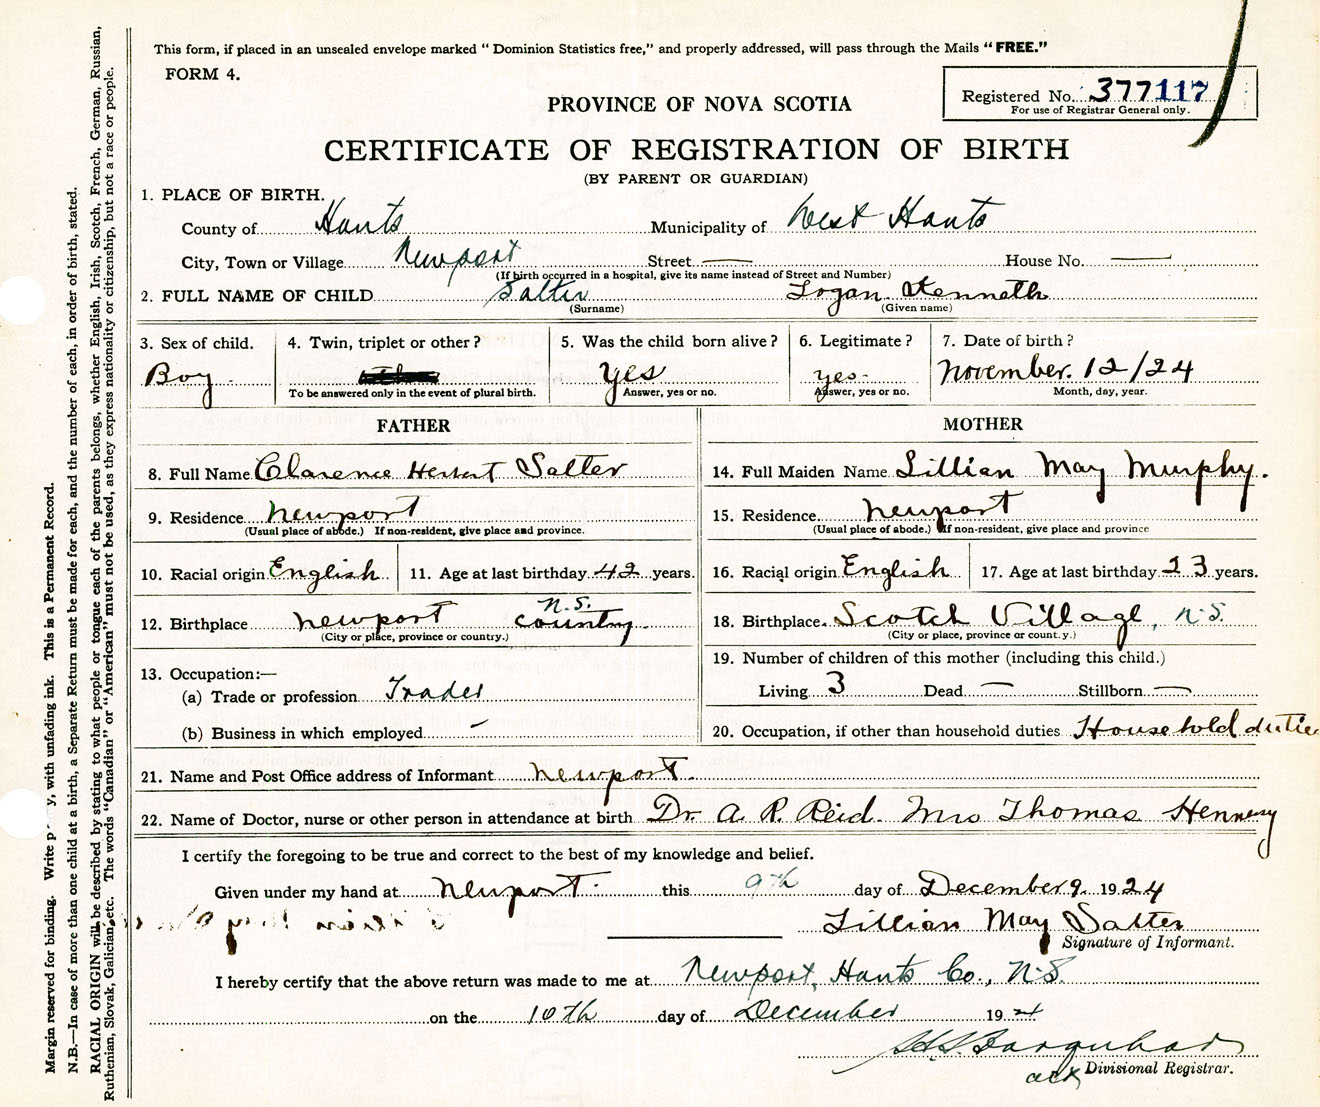 This form, if placed in an unsealed envelope marked "Dominion Statistics free," and properly addressed, will pass through the Mails "FREE."
FORM 4.
Registered No. 377117
For use of Registrar General only.
PROVINCE OF NOVA SCOTIA
CERTIFICATE OF REGISTRATION OF BIRTH
(BY PARENT OR GUARDIAN)
1. PLACE OF BIRTH.
County of Hants Municipality of West Hants
City, Town or Village Newport Street — House No. —
(If birth occurred in a hospital, give its name instead of Street and Number)
2. FULL NAME OF CHILD Salter Logan Kenneth
(Surname) (Given name)
3. Sex of child. 4. Twin, triplet or other? 5. Was the child born alive? 6. Legitimate? 7. Date of birth?
Boy. Yes yes. November. 12/24
To be answered only in the event of plural birth. Answer, yes or no. Answer, yes or no. Month, day, year.
FATHER MOTHER
8. Full Name Clarence Herbert Salter 14. Full Maiden Name Lillian May Murphy.
9. Residence Newport 15. Residence Newport
(Usual place of abode.) If non-resident, give place and province. (Usual place of abode.) If non-resident, give place and province
10. Racial origin English 11. Age at last birthday 42 years. 16. Racial origin English 17. Age at last birthday 23 years.
N.S.
12. Birthplace Newport country 18. Birthplace. Scotch Village, N.S.
(City or place, province or country.) (City or place, province or count.y.)
13. Occupation:— 19. Number of children of this mother (including this child.)
(a) Trade or profession Trader Living 3 Dead — Stillborn —
(b) Business in which employed - 20. Occupation, if other than household duties Household duties
21. Name and Post Office address of Informant Newport.
22. Name of Doctor, nurse or other person in attendance at birth Dr. A. R. Reid. Mrs Thomas Hennesy
I certify the foregoing to be true and correct to the best of my knowledge and belief.
Given under my hand at Newport. this 9th day of December 9. 1924
Lillian May Salter
Signature of Informant.
I hereby certify that the above return was made to me at Newport, Hants Co., N.S.
on the 10th day of December 1924
Farquhar
Divisional Registrar.
Margin reserved for binding. Write , with unfading ink. This is a Permanent Record.
N.B.—In case of more than one child at a birth, a Separate Return must be made for each, and the number of each, in order of birth, stated.
RACIAL ORIGIN will be described by stating to what people or tongue each of the parents belongs, whether English, Irish, Scotch, French, German, Russian,
Ruthenian, Slovak, Galician, etc. The words "Canadian" or "American" must not be used, as they express nationality or citizenship, but not a race or people.